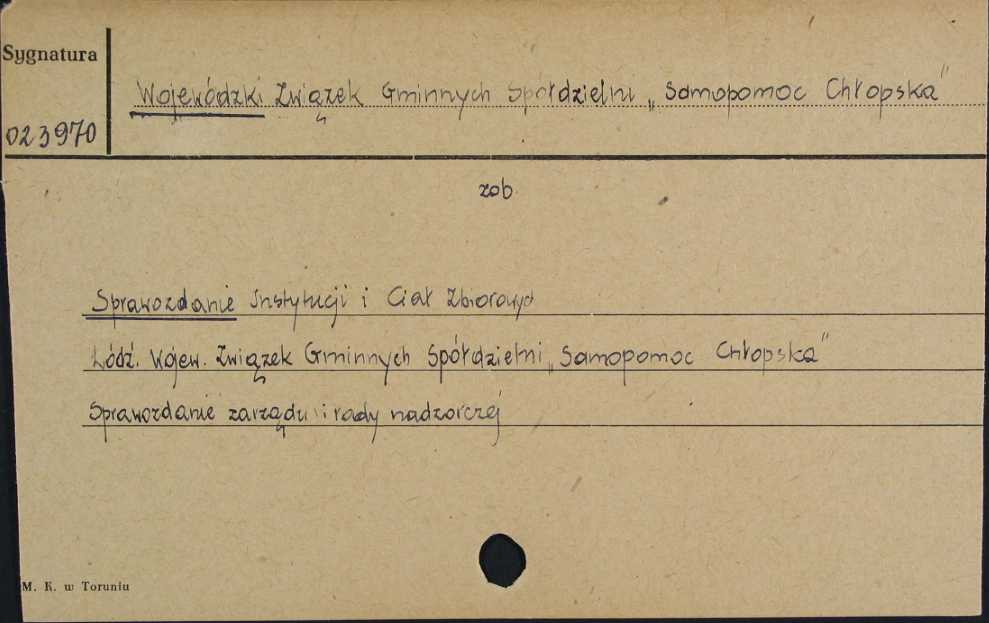 Sygnatura
Wojewódzki Związek Gminnych Spółdzielni „Samopomoc Chłopska”
023970
zob.
Sprawozdanie Instytucji i Ciał Zbiorowych
Łódź. Wojew. Związek Gminnych Spółdzielni „Samopomoc Chłopska”
Sprawozdanie zarządu i rady nadzorczej
M. K. w Toruniu